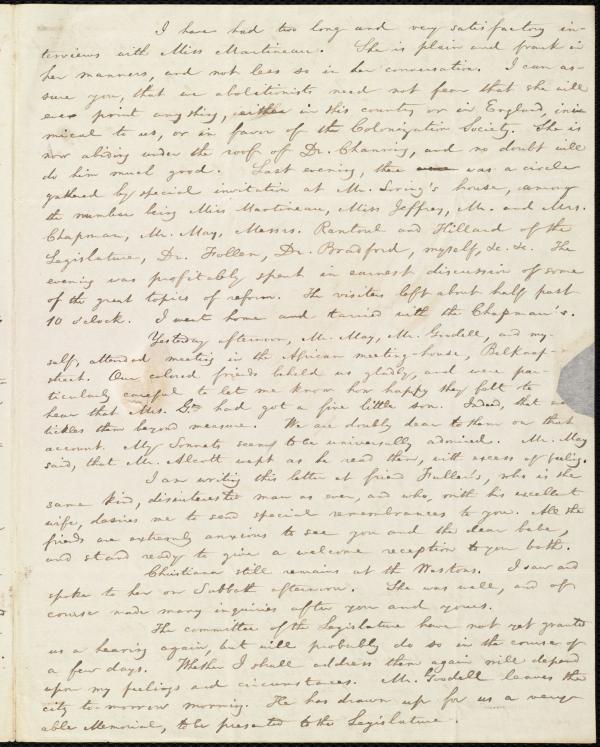 I have had two long and very satisfactory in-
terviews with Miss Martineau. She is plain and frank in
her manners, and not less so in her conversation. I can as-
sure you, that we abolitionists need not fear that she will
ever print anything, either in this country or in England, inim-
ical to us, or in favor of the Colonization Society. She is
now abiding under the roof of Dr. Channing, and no doubt will
do him much good. Last evening, there was a circle
gathered by special invitation at Mr. Loring's house, among
the number being Miss Martineau, Miss Jeffrey, Mr. and Mrs.
Chapman, Mr. May, Messrs. Rantoul and Hillard of the
Legislature, Dr. Follen, Dr. Bradford, myself, &c. &c. The
evening was profitably spent in earnest discussion of some
of the great topics of reform. The visitors left about half past
10 o'clock. I went home and tarried with the Chapman's.
Yesterday afternoon, Mr. May, Mr. Goodell, and my-
self, attended meeting in the African meeting-house, Belknap-
street. Our colored friends beheld us gladly, and were par-
ticularly careful to let me know how happy they felt to
hear that Mrs. G. had got a fine little son. Indeed, that
tickles them beyond measure. We are doubly dear to them on that
account. My Sonnets seem to be universally admired. Mr. May
said, that Mr. Alcott wept as he read them, with excess of feeling.
I am writing this letter at friend Fuller's, who is the
same kind, disinterested man as ever, and who, with his excellent
wife, desires me to send special remembrances to you. All the
friends are extremely anxious to see you and the dear babe,
and stand ready to give a welcome reception to you both.
Christiana still remains at the Westons. I saw and
spoke to her on Sabbath afternoon. She was well, and of
course made many inquiries after you and yours.
The committee of the Legislature have not yet granted
us a hearing again, but will probably do so in the course of
a few days. Whether I shall address them again will depend
upon my feelings and circumstances. Mr. Goodell leaves the
city to-morrow morning. He has drawn up for us a very
able Memorial, to be presented to the Legislature.